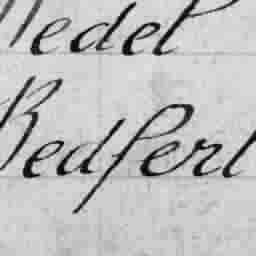 Medel
Bedfert